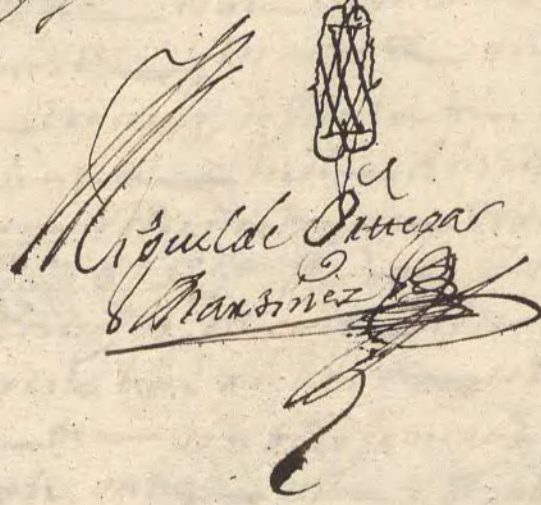 Miguel de Orttega
y Martinez